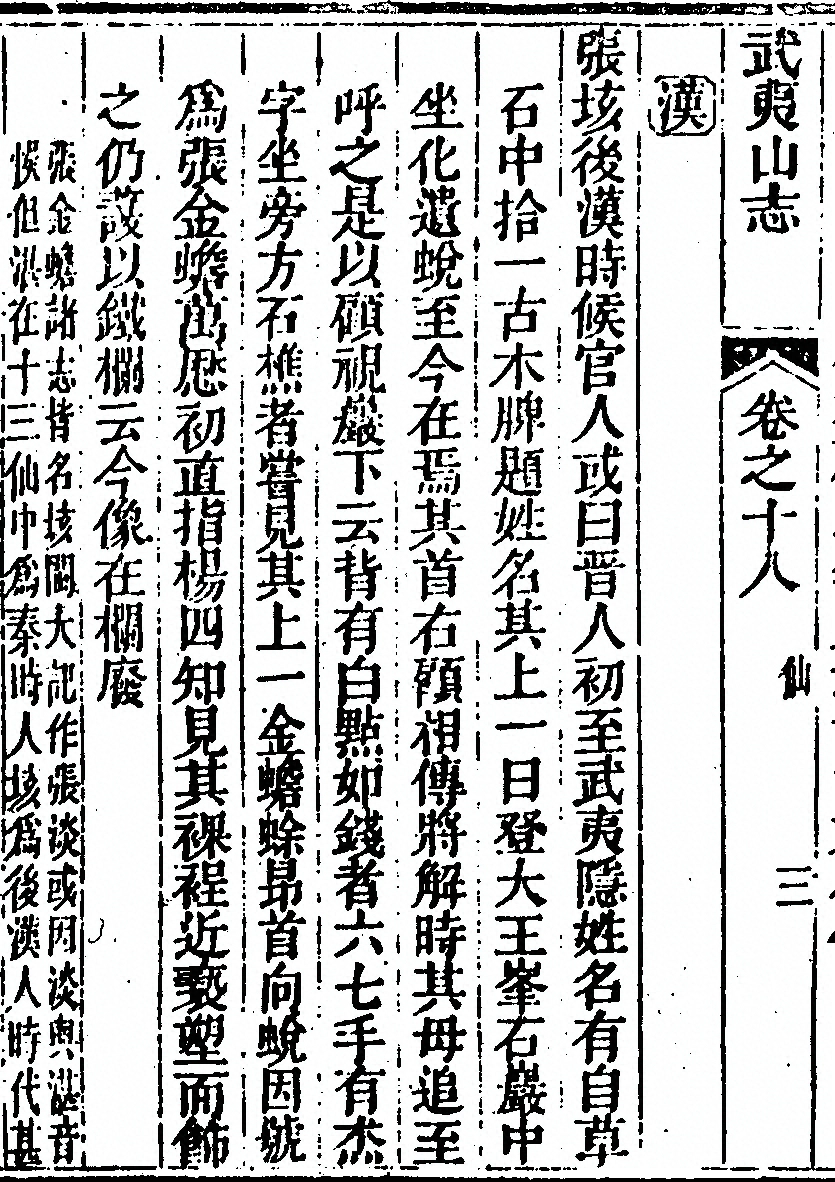 武夷山志 卷之十八 仙 三
漢
張垓後漢時候官人或曰晋人初至武夷隱姓名有自草
石中拾一古木牌題姓名其上一日登大王峯右巖中
坐化遺蛻至今在焉其首右顧相傳將解時其母追至
呼之是以顧視巖下云背有白點如錢者六七手有杰
字坐旁方石樵者嘗見其上一金蟾蜍昻首向蛻因號
爲張金蟾萬厯初直指楊四知見其裸裎近褻塑而飾
之仍護以鐵欄云今像在欄廢
張金蟾諸志皆名垓閩大記作張淡或因淡與湛音
悞但湛在十三仙中爲秦時人垓爲後漢人時代甚